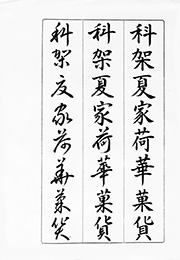 科架夏家荷華菓貨
科架夏家荷華菓貨
科架夏家荷華菓貨